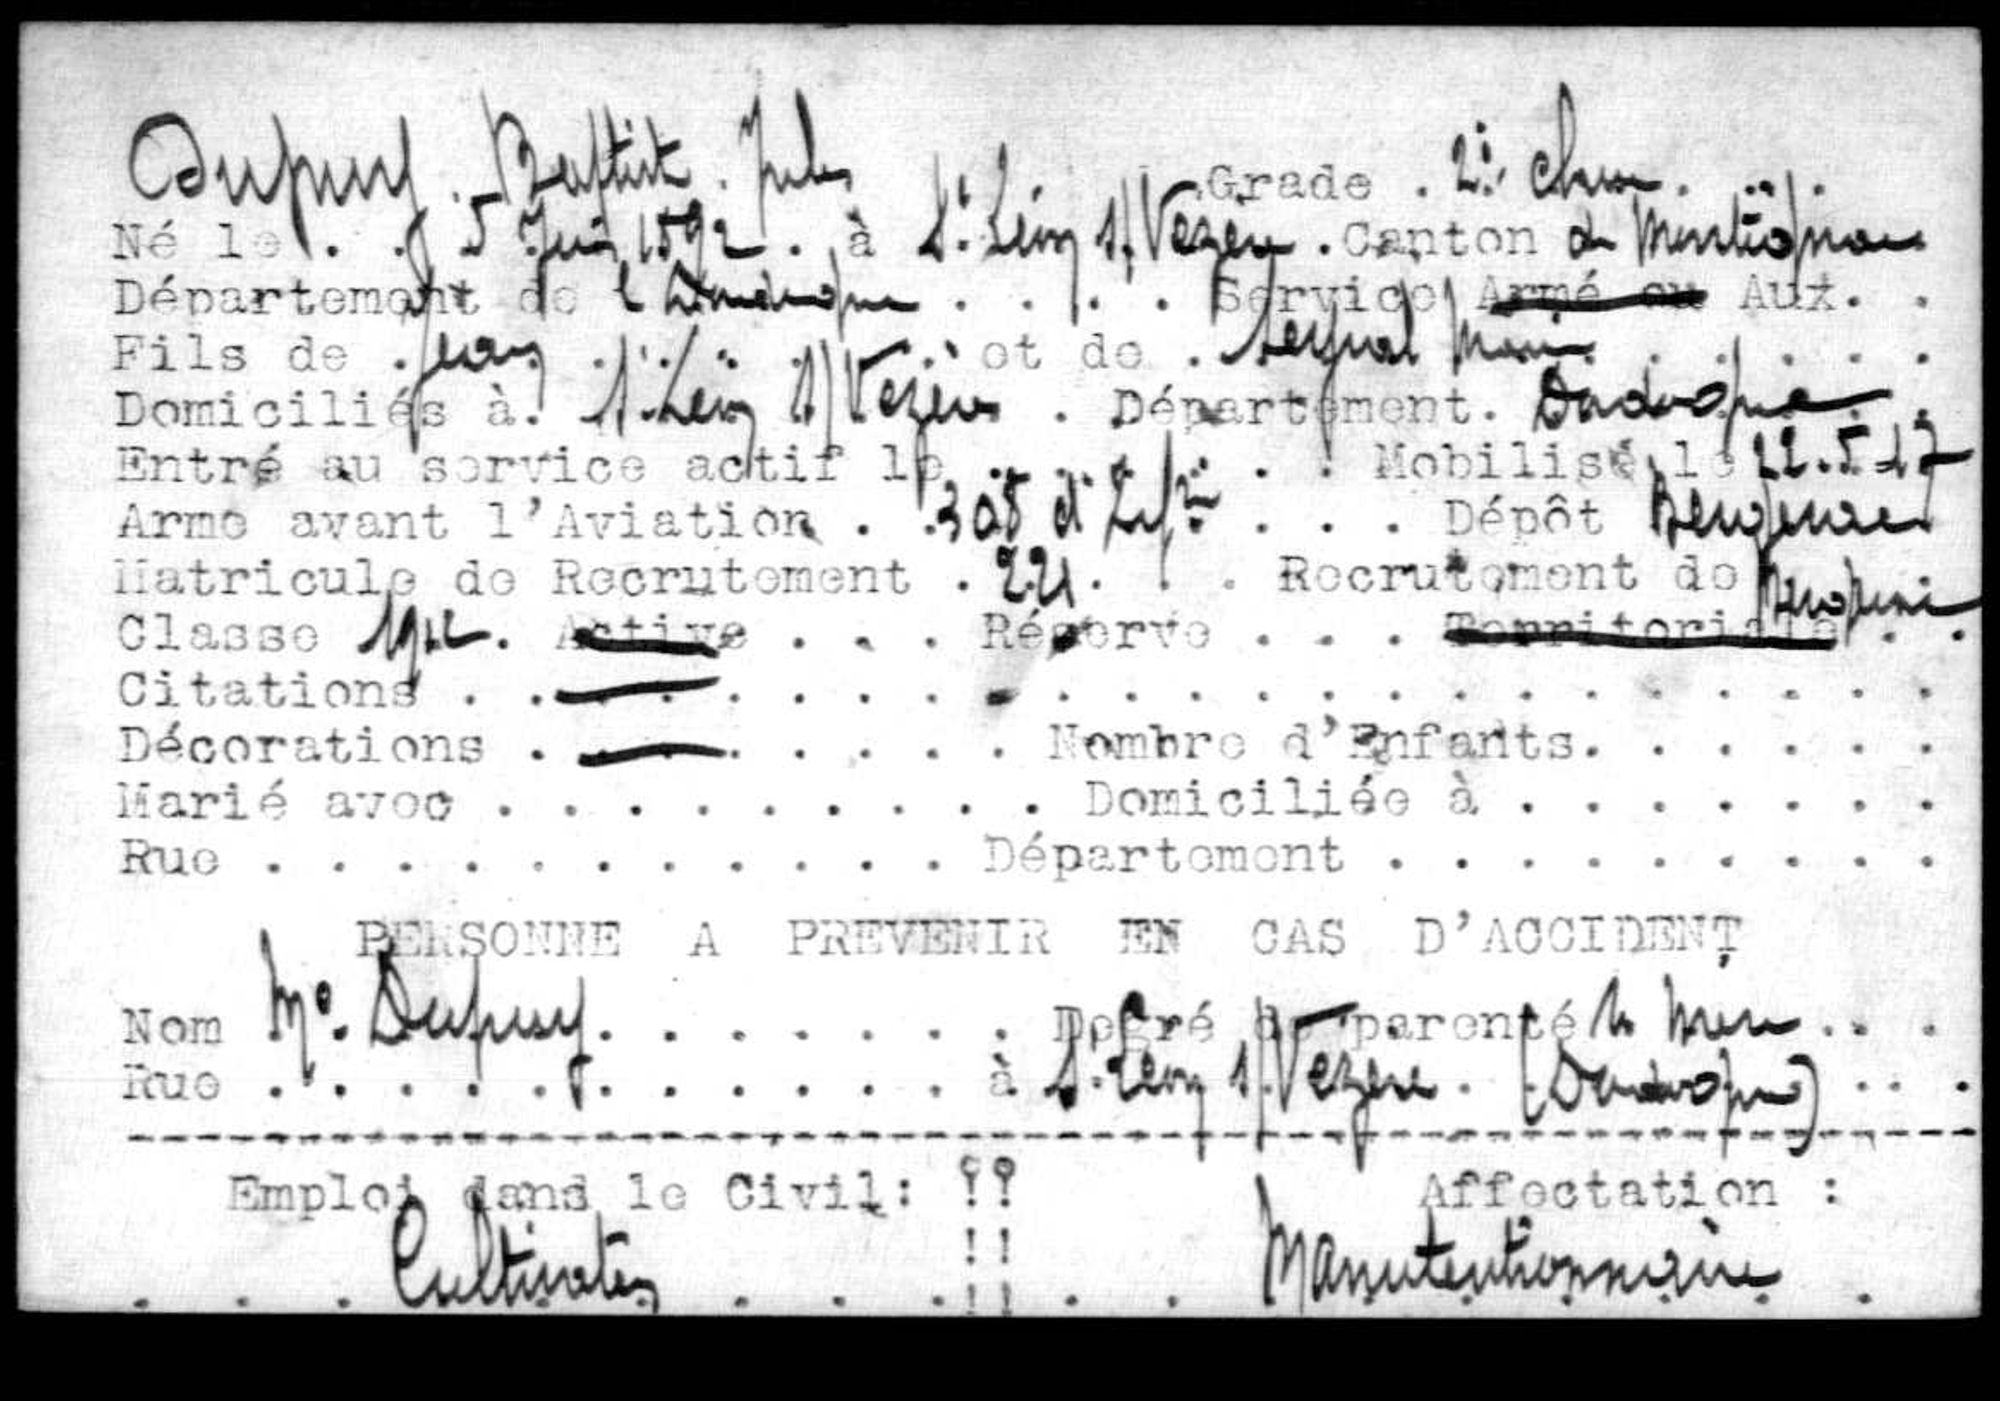 Dupuy. Baptiste. Jules Grade . 2e classe .
Né le . . 5 Juin 1892 . à St Léon s/ Vezère . Canton de Montignac
Département de la Dordogne . . . . Service Armé ou Aux. .
Fils de . Jean . . . . et de . Marie . . . . .
Domiciliés à. St Léon s/ Vezère . Département. Dordogne . .
Entré au service actif le . . . . . . Mobilisé le 22.5.17
Arme avant l'Aviation . . 308 d' Infie . . . Dépôt Bergerac
Matricule de Recrutement . 221. . . Recrutement de Bergerac
Classe 1912. Active . . . Réserve . . . Territoriale . .
Citations . . . . . . . . . . . . . . . . . . . . .
Décorations . . . . . . . . Nombre d'Enfants. . . . . .
Marié avec . . . . . . . . . Domiciliée à . . . . . . .
Rue . . . . . . . . . . . Département . . . . . . . . .
PERSONNE A PREVENIR EN CAS D'ACCIDENT
Nom Me. Dupuy. . . . . . . Degré de parenté sa mère . . .
Rue . . . . . . . . . . . à St Léon s/ Vezère . (Dordogne) . . .
Emploi dans le Civil: !! Affectation :
Cultivateur !! Manutentionnaire